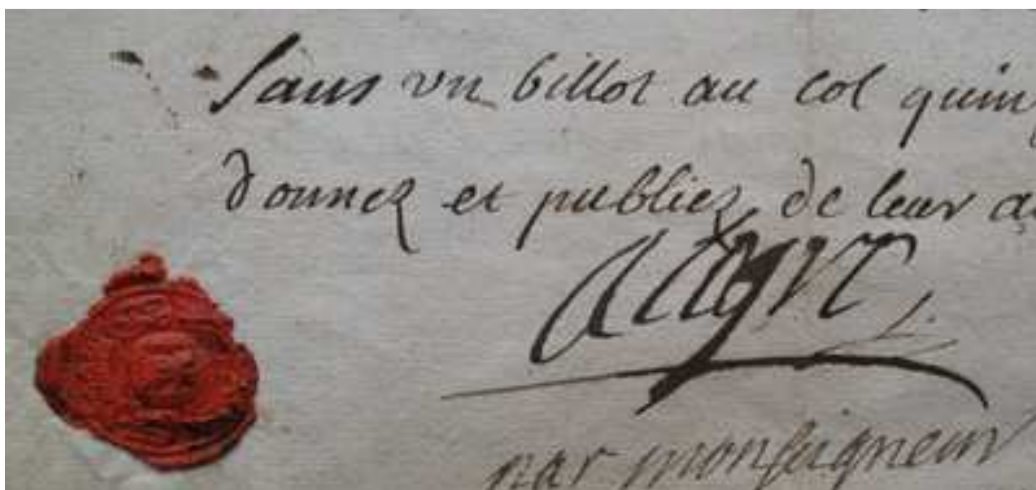 Sans un billot au col quin
donnez et publiez de leur a
par monseigneur